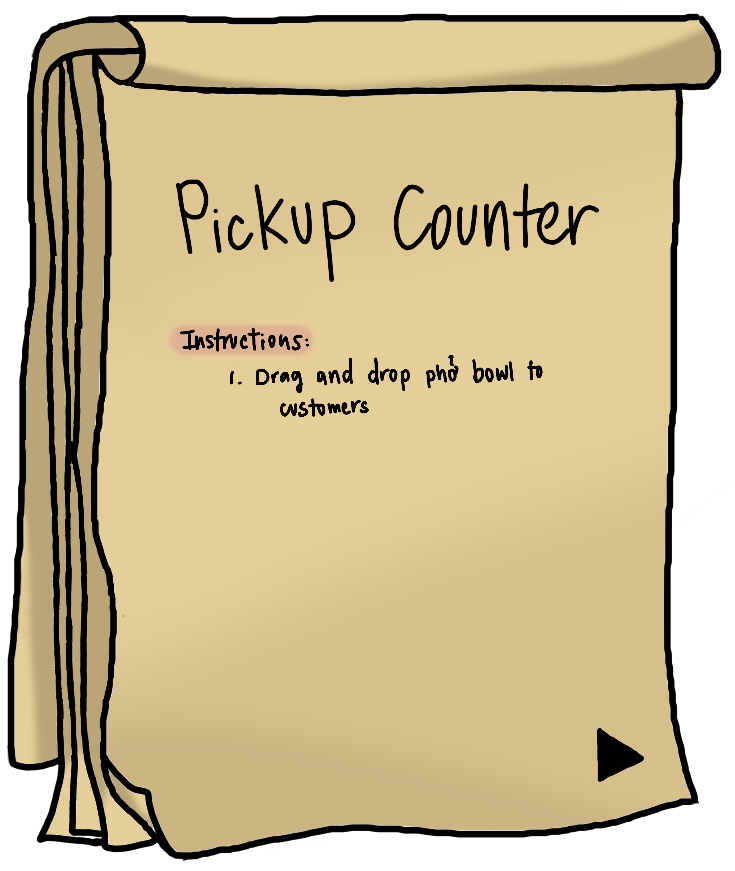 Pickup Counter
Instructions:
1. Drag and drop phở bowl to
customers